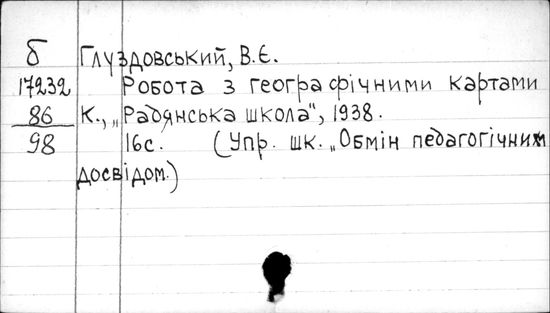 б Глуздовський, В.Є.
17232 Робота з географічними картами
86 К., „Радянська школа", 1938.
98 16с. (Упр. шк. „Обмін педагогічним
досвідом.)